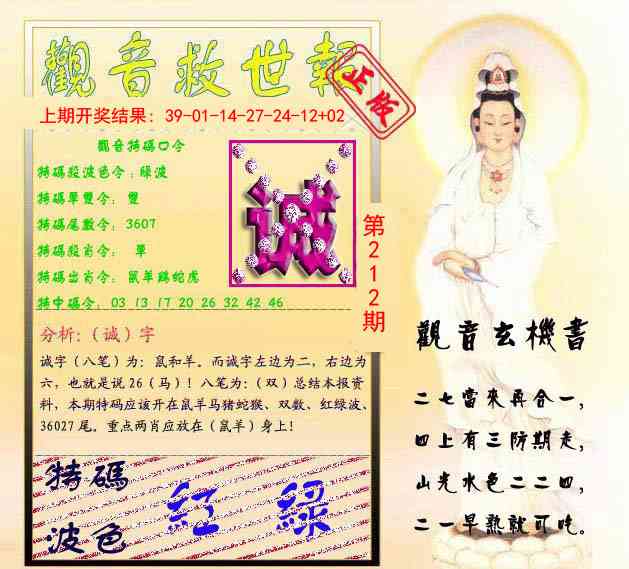 觀音救世報
正版
上期开奖结果：39-01-14-27-24-12+02
觀音特碼口令
特碼殺波色令：綠波
特碼單雙令： 雙
特碼尾數令：3607
特碼殺肖令： 單
特碼出肖令： 鼠羊鷄蛇虎
特中碼令：03 13 17 20 26 32 42 46
诚
第212期
分析：（诚）字
诚字（八笔）为：鼠和羊。而诚字左边为二，右边为
六，也就是说26（马）！八笔为：（双）总结本报资
料，本期特码应该开在鼠羊马猪蛇猴、双数、红绿波、
36027尾。重点两肖应放在（鼠羊）身上！
特碼
波色
紅 綠
觀音玄機書
二七當來再合一，
四上有三防期走，
山光水色二二四，
二一早熟就可吃。